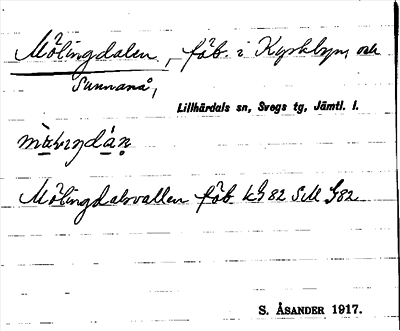 Mölingdalen, fäb. i Kyrkbyn, och
Sunnanå,
Lillhärdals sn, Svegs tg, Jämtl. l.
Mölingdalsvallen fäb. kG 82 SM G82
S. ÅSANDER 1917.